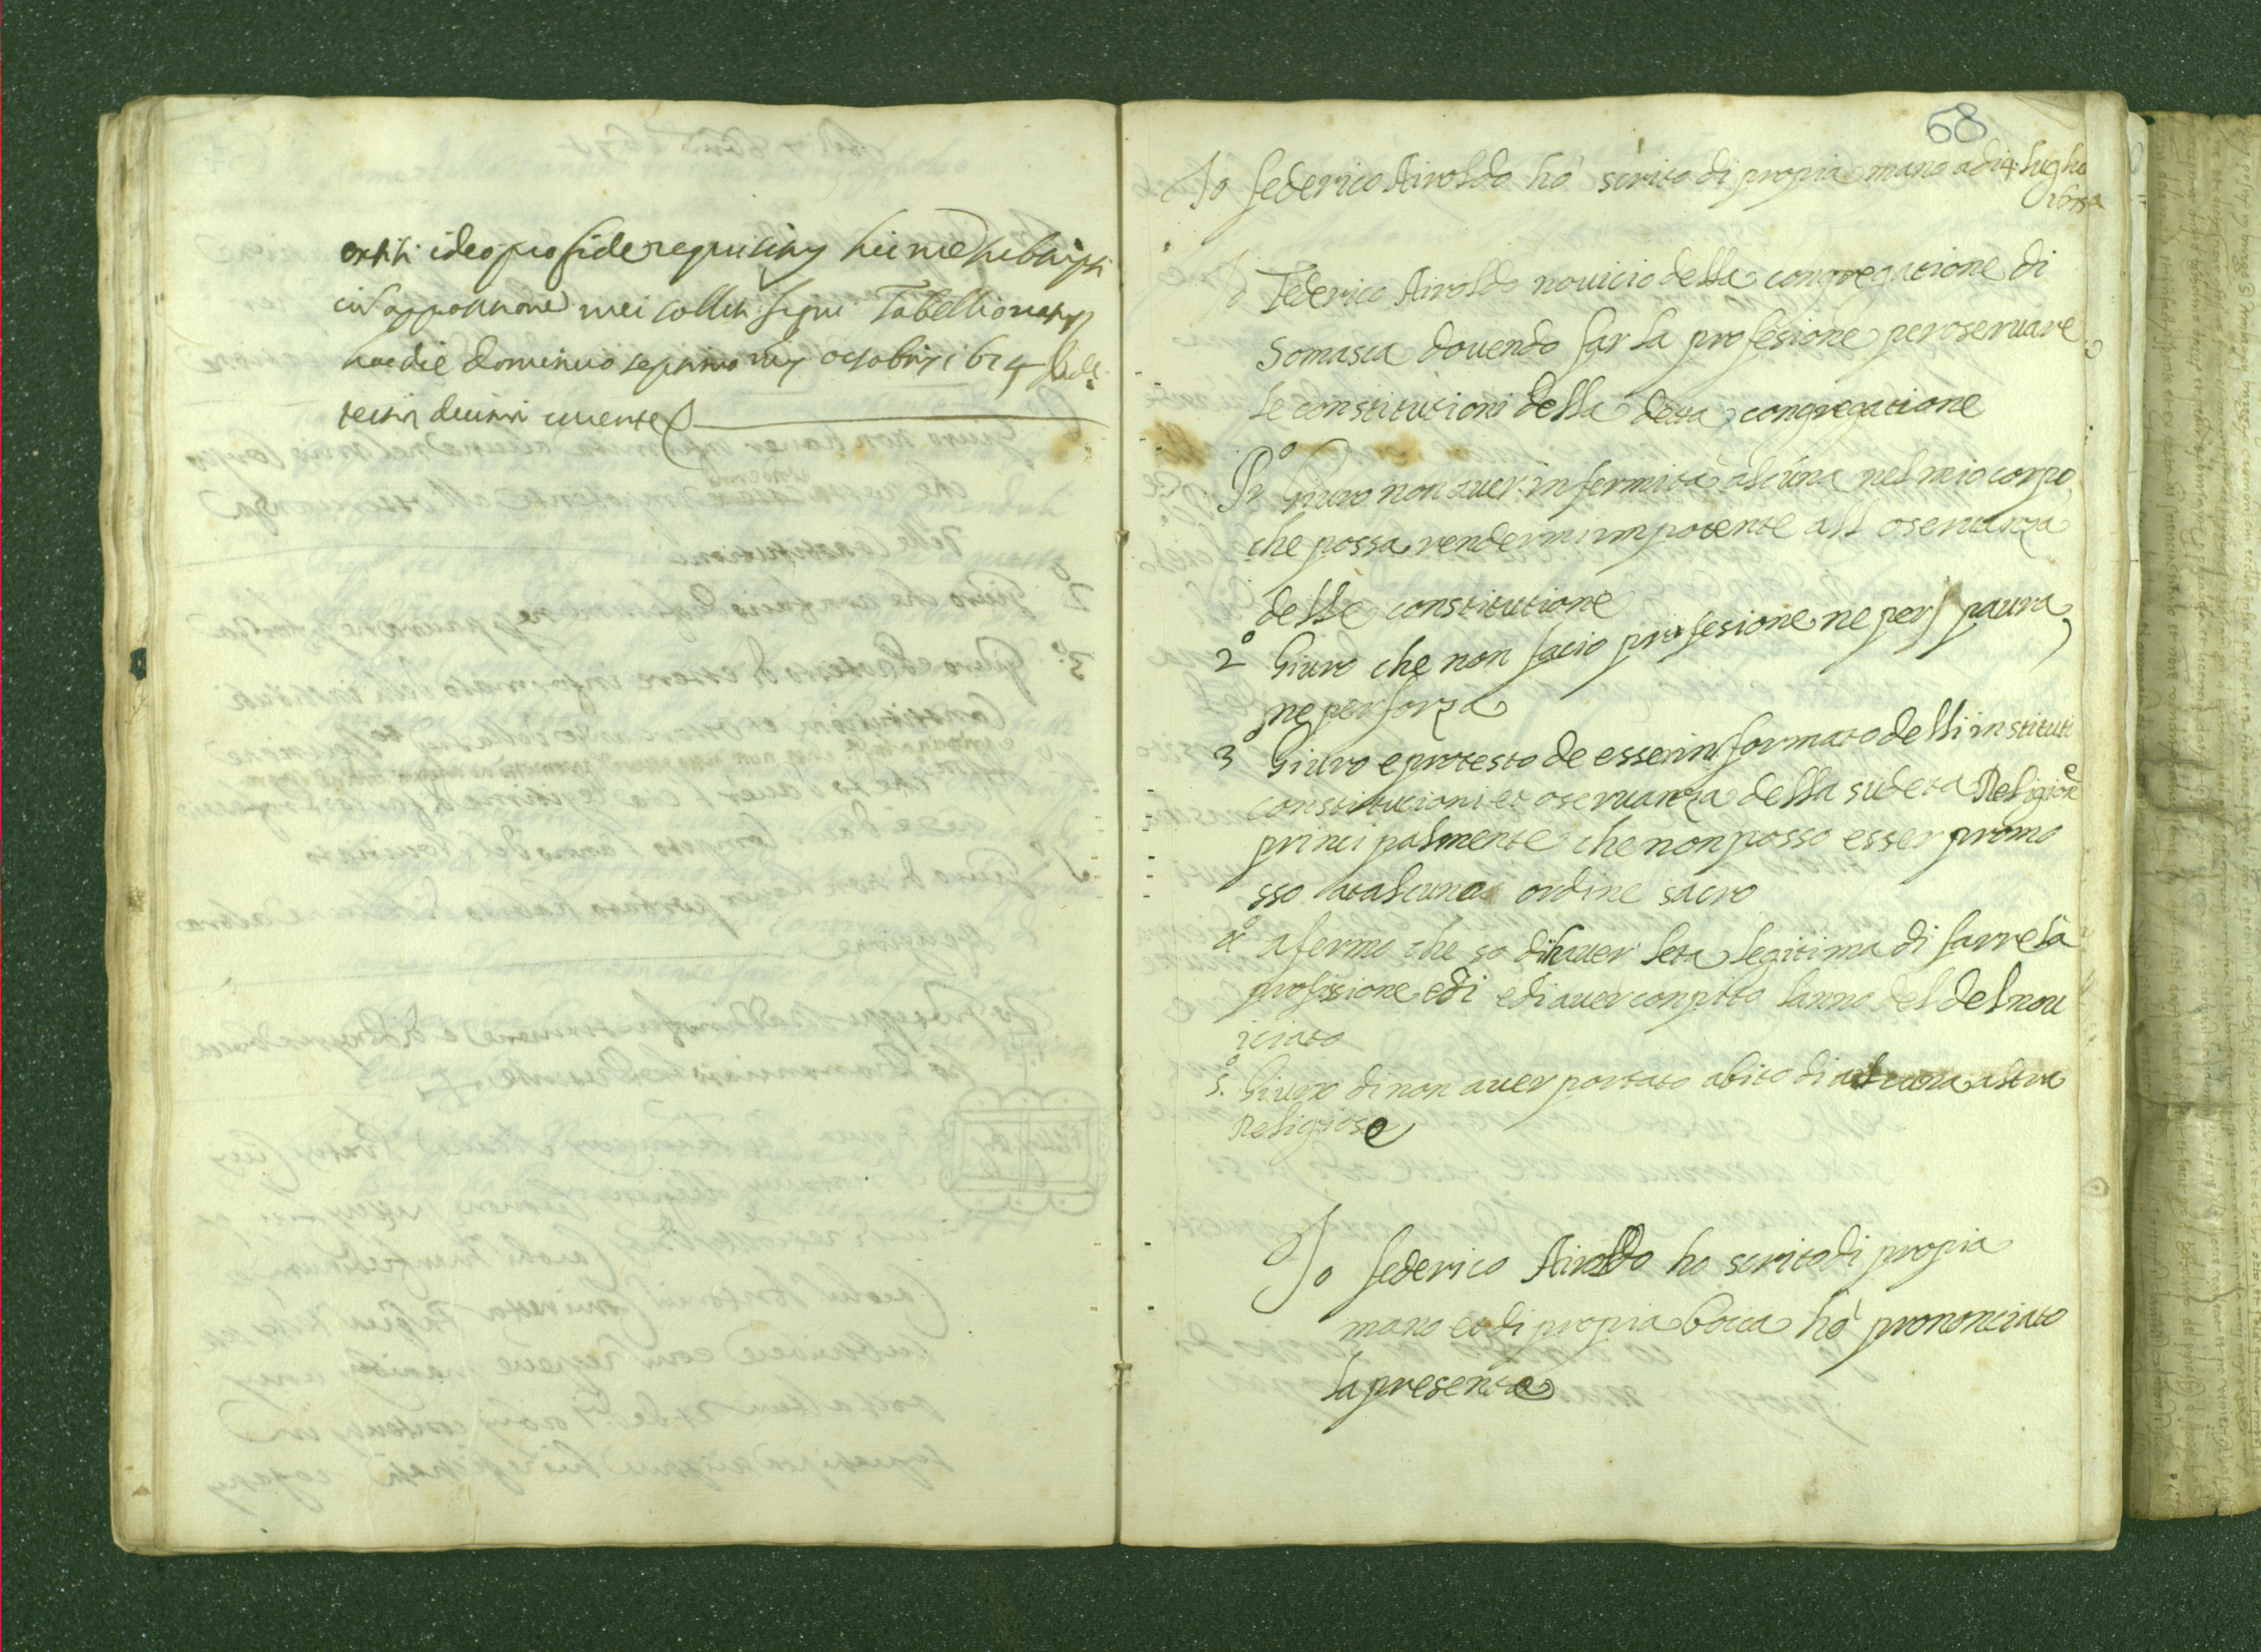 extiti ideo pro fide requisitus hic me subscripsi
cum appositione mei soliti signi Tabellionatus
hac die dominico septimo mensis octobris 1674
tertia decima
68
Io federico Airoldo hò scrito di propia mano adi 4 luglio
Io Federico Airoldo nouicio della congregatione di
Somasca douendo far la profesione per oseruare
le constitutioni della detta congregatione
Pr.o Giuro non auer infermità alcuna nel mio corpo
che possa rendermi impotente all oseruanza
delle constitutione
2o Giuro che non facio profesione ne per paura
ne per forza
3o Giuro e protesto de esser informato delli instituti
constitucioni et oseruanza della sudeta Religione
principalmente che non posso esser promo
sso ordine sacro
4o afermo che so di hauer leta legitima di farre la
profissione edi edi auer conpito lanno del del nou
iciato
5o. Giuro di non auer portato abito di alcuna altra
Religiose
Io federico Airoldo ho scrito di propia
mano et di propia bocca hò prononciato
la presente